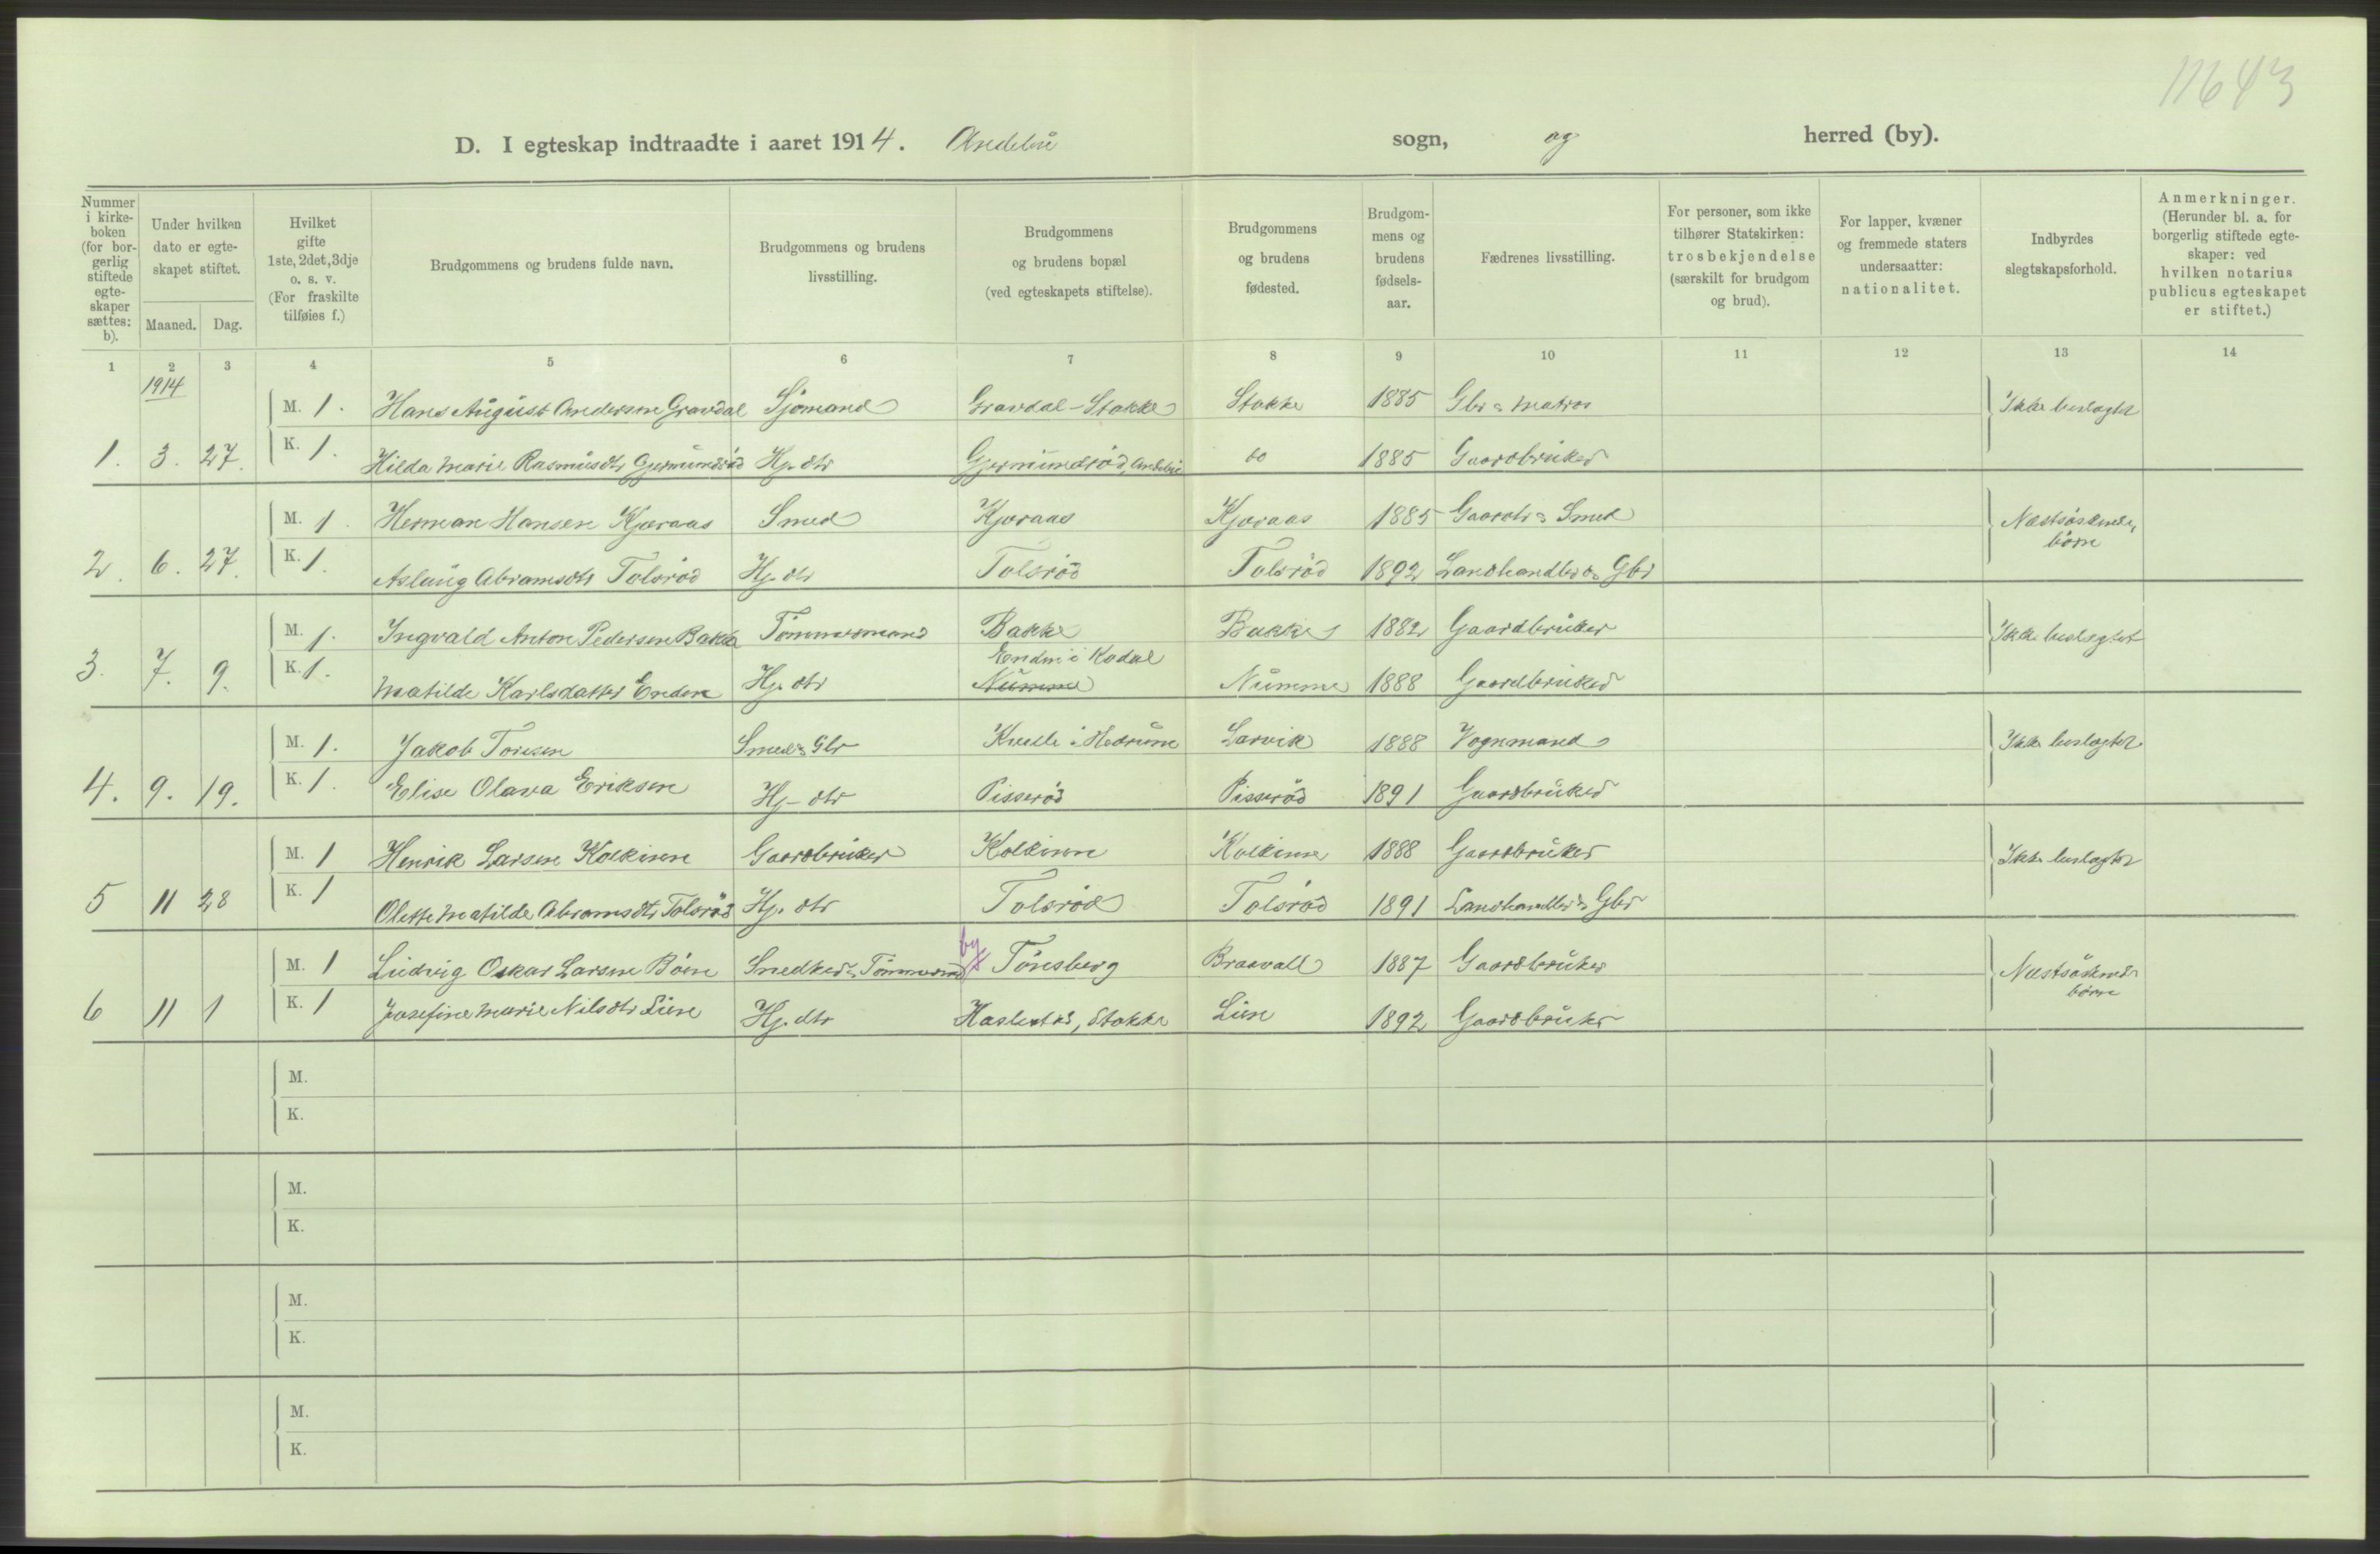 11643
D. I egteskap indtraadte i aaret 1914. Andebu sogn, og herred (by).
Nummer i kirke-boken (for bor-gerlig stiftede egte-skaper sættes: b).
Under hvilken dato er egte-skapet stiftet.
Maaned. Dag.
Hvilket gifte 1ste, 2det, 3dje o. s. v. (For fraskilte tilføies f.)
Brudgommens og brudens fulde navn.
Brudgommens og brudens livsstilling.
Brudgommens og brudens bopæl (ved egteskapets stiftelse).
Brudgommens og brudens fødested.
Brudgom-mens og brudens fødsels-aar.
Fædrenes livsstilling.
For personer, som ikke tilhører Statskirken: trosbekjendelse (særskilt for brudgom og brud).
For lapper, kvæner og fremmede staters undersaatter: nationalitet.
Indbyrdes slegtskapsforhold.
Anmerkninger. (Herunder bl. a. for borgerlig stiftede egte-skaper: ved hvilken notarius publicus egteskapet er stiftet.)
1 2 3 4 5 6 7 8 9 10 11 12 13 14
1914
M. 1. Hans August Andersen Gravdal Sjømand Gravdal - Stokke Stokke 1885 Gbr & Matros Ikke beslegtet
1. 3. 27. K. 1. Hilda Marie Rasmusdtr Gjermundrød Hj. dtr Gjermundrød, Andebu do 1885 Gaardbruker
M. 1. Herman Hansen Kjæraas Smed Kjæraas Kjæraas 1885 Gaardbr & Smed Næstsøskende-
børn
2. 6. 27. K. 1. Aslaug Abramsdtr Tolsrød Hj. dtr Tolsrød Tolsrød 1892 Landhandler & Gbr
M. 1. Ingvald Anton Pedersen Bakke Tømmermand Bakke Bakke 1882 Gaardbruker Ikke beslegtet
Enden i Kodal
3. 7. 9. K. 1. Matilde Karlsdatter Enden Hj. dtr Numme Numme 1888 Gaardbruker
M. 1. Jakob Toresen Smed & Gbr i Hedrum Larvik 1888 Vognmand Ikke beslegtet
4. 9. 19. K. 1. Elise Olava Eriksen Hj. dtr Pisserød Pisserød 1891 Gaardbruker
M. 1 Henrik Larsen Kolkinn Gaardbruker Kolkinn Kolkinn 1888 Gaardbruker Ikke beslegtet
5 11 28 K. 1 Olette Matilde Abramsdtr Tolsrød Hj. dtr Tolsrød Tolsrød 1891 Landhandler & Gbr
by
M. 1 Ludvig Oskar Larsen Bøen Snedker & Tømmermd Tönsberg Braavall 1887 Gaardbruker Næstsøskende
børn
6 11 1 K. 1 Josefine Marie Nilsdtr Lien Hj. dtr Haslestad, Stokke Lien 1892 Gaardbruker
M.
K.
M.
K.
M.
K.
M.
K.